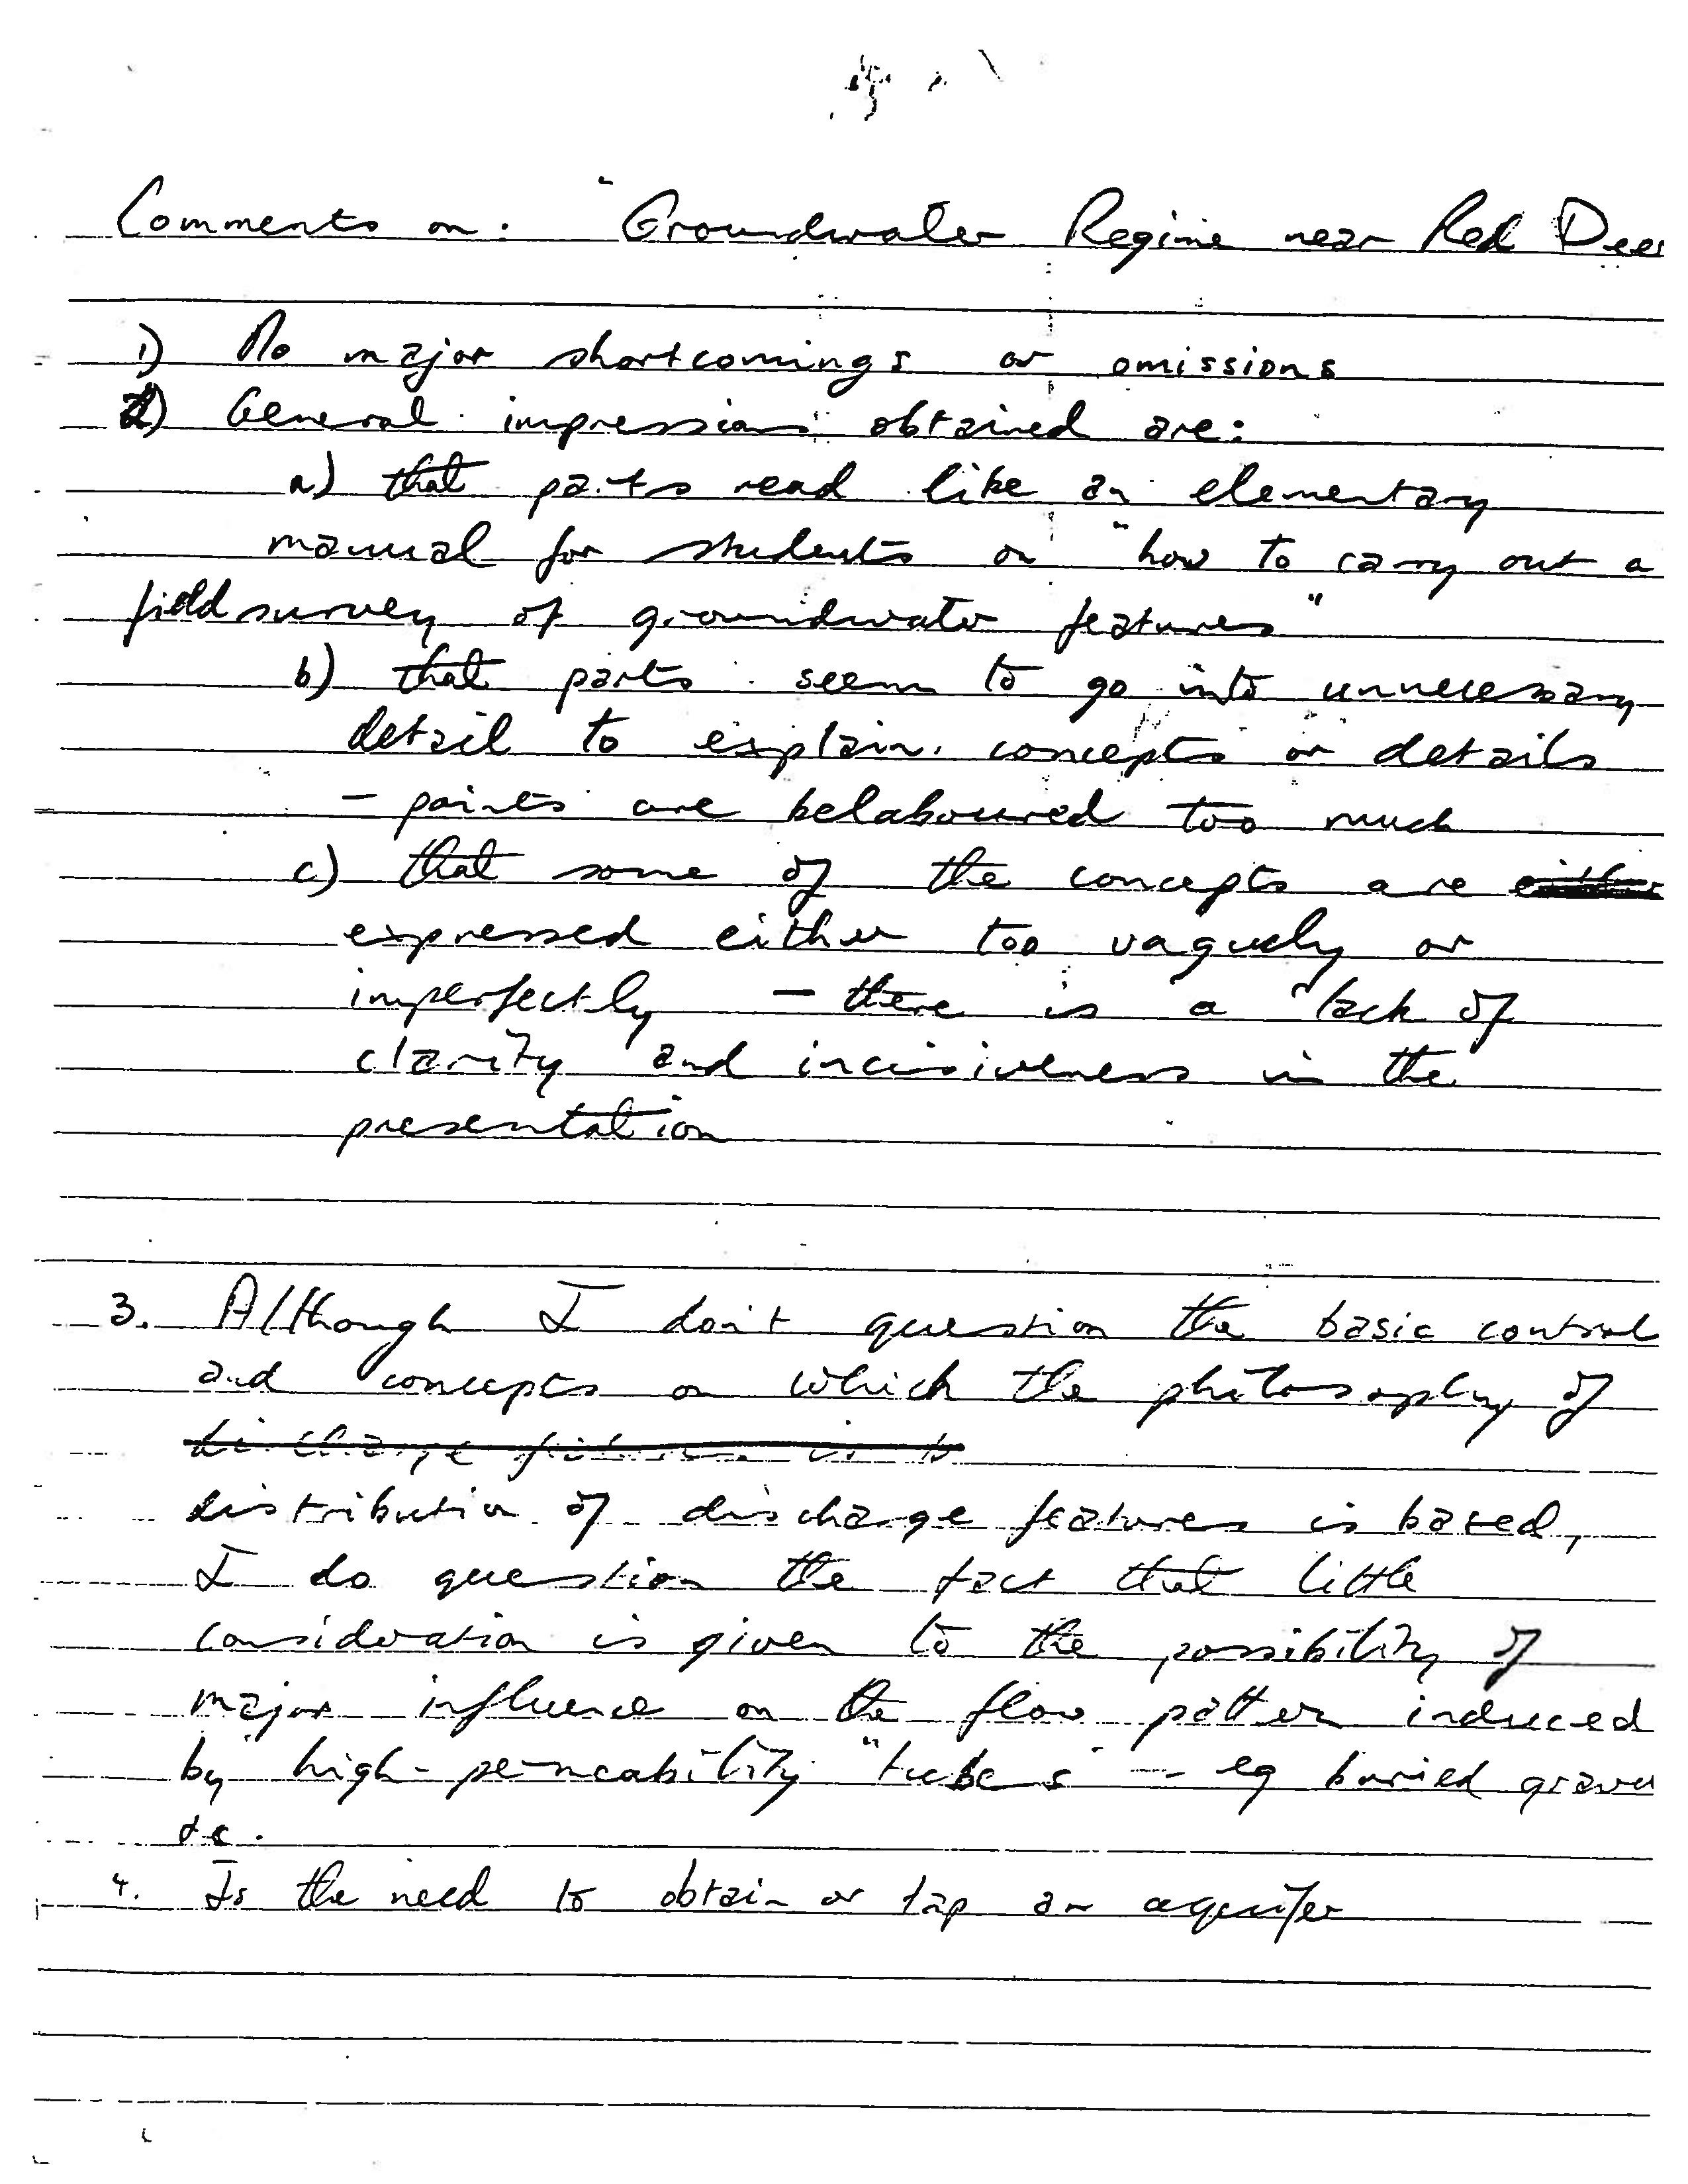 Comments on: "Groundwater Regime near Red Deer
1) No major shortcomings or omissions
2) General impressions obtained are:
a) that parts read like an elementary
manual for students on "how to carry out a
field survey of groundwater features"
b) that parts seem to go into unnecessary
detail to explain concepts or details
- points are belaboured too much
c) that some of the concepts are either
expressed either too vaguely or
imperfectly - there is a "lack of
clarity and incisiveness in the
presentation
3. Although I don't question the basic control
and concepts on which the philosophy of
distribution of discharge features is based,
I do question the fact that little
consideration is given to the possibility of
major influence on the flow pattern induced
by high-permeability "tubes" - eg buried gravel
etc.
4. Is the need to obtain or tap an aquifer